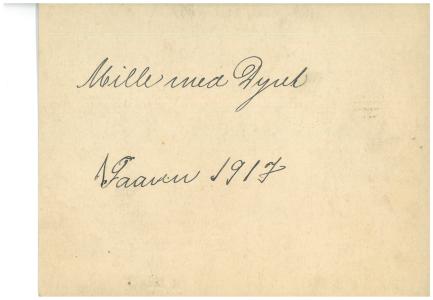 Mille med Dyret
Faaren 1917